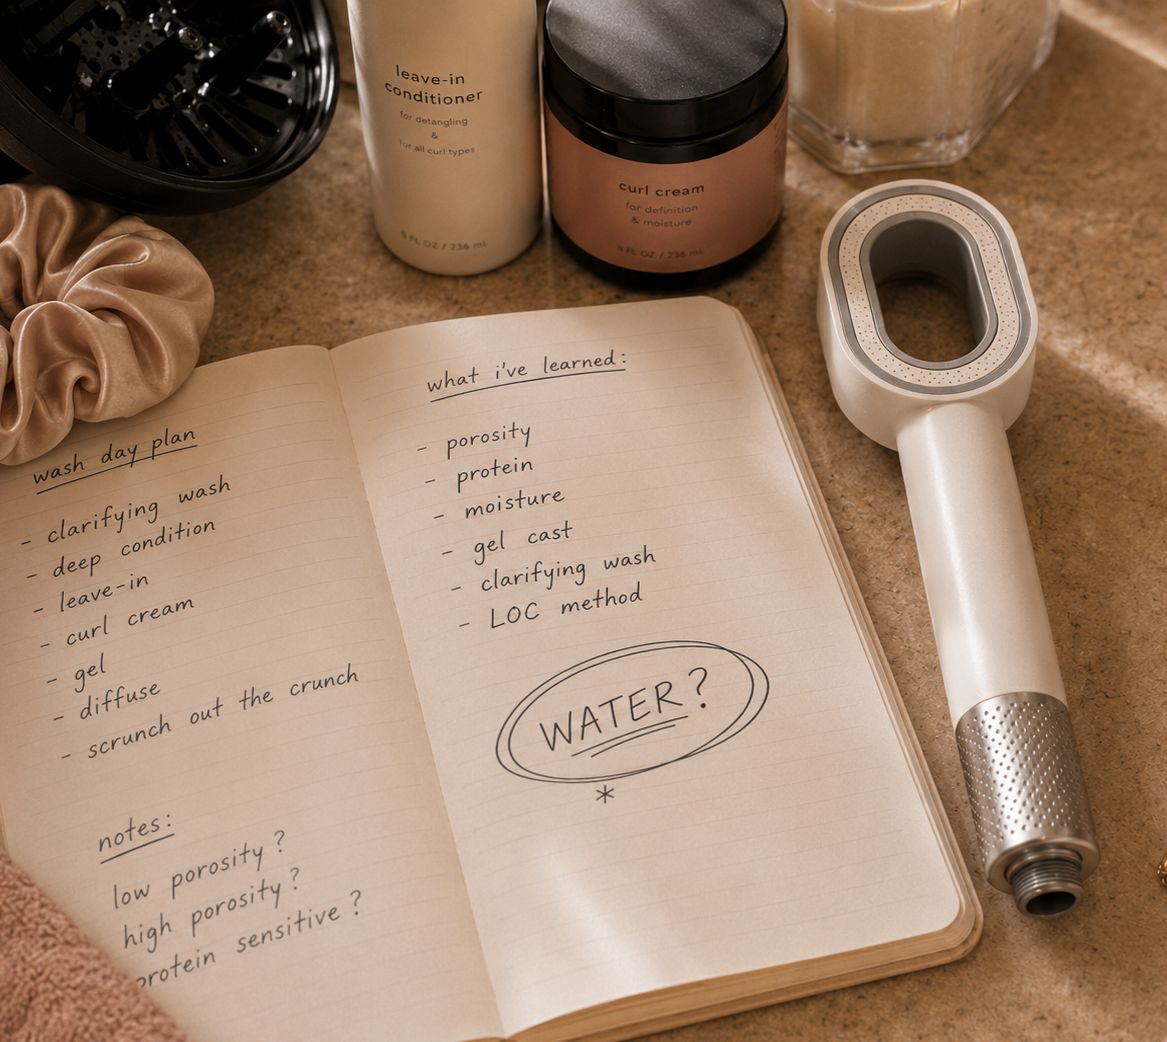 leave-in
conditioner
for detangling
&
for all curl types
8 FL OZ / 236 mL
curl cream
for definition
& moisture
8 FL OZ / 236 mL
wash day plan
- clarifying wash
- deep condition
- leave-in
- curl cream
- gel
- diffuse
- scrunch out the crunch
notes:
low porosity?
high porosity?
protein sensitive?
what i've learned:
- porosity
- protein
- moisture
- gel cast
- clarifying wash
- LOC method
WATER?
*